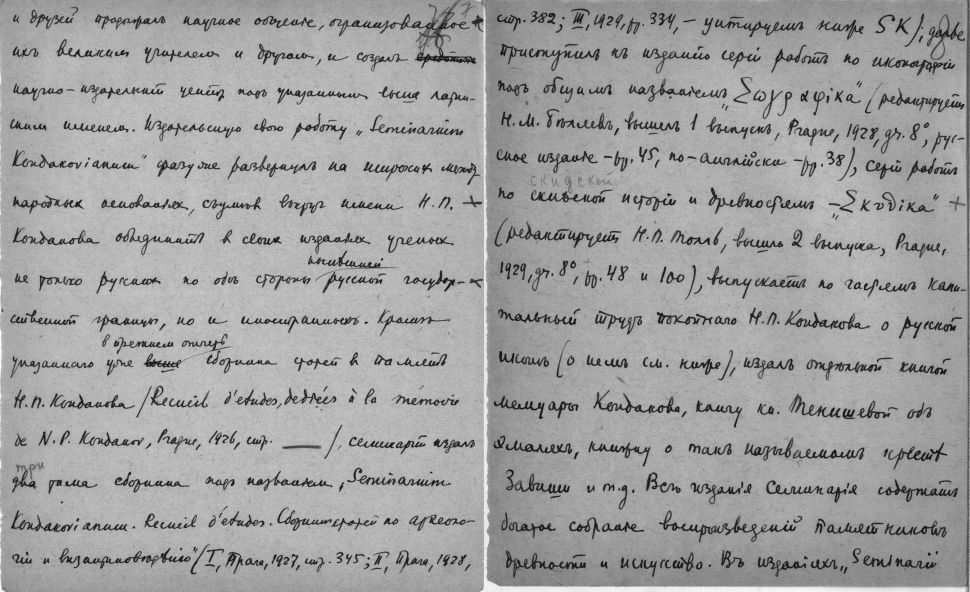 и друзей продолжалъ научное общенiе, организованное
ихъ великимъ учителемъ и другомъ, и создалъ
научно-издательскiй центръ подъ указаннымъ выше латин-
скимъ именемъ. Издательскую свою работу „Seminarium
Kondakovianum" сразу же развернулъ на широкихъ между
народныхъ основанiяхъ, съумѣвъ вокругъ имени Н.П.
Кондакова объединить в своихъ изданiяхъ ученыхъ
нынѣшней
не только русскихъ по обѣ стороны русской государ-
ственной границы, но и иностранныхъ. Кромѣ
в прежнемъ отчетѣ
указаннаго уже выше сборника статей в память
Н.П. Кондакова /Recueil d'études, dédiées à la mémoire
de N.P. Kondakov, Prague, 1926, стр. ___ /, семинарiй издалъ
три
два тома сборника подъ названiемъ „Seminarium
Kondakovianum. Recueil d'études. Сборникъ статей по археоло-
гiи и византиновѣдѣнiю" (I, Прага, 1927, стр. 345; II, Прага, 1928,
стр. 382; III, 1929, pp. 334, – цитируемъ ниже SK); далѣе
приступилъ къ изданiю серiй работъ по иконографiи
подъ общимъ названiемъ „Σωγραφiка" (редактируетъ
Н.М. Бѣляевъ, вышелъ 1 выпускъ, Prague, 1928, gr. 8°, рус-
ское изданiе – pp. 45, по-англiйски – pp. 38), серiй работъ
скифской
по скивской исторiи и древностямъ – „Σκυθiка"
(редактируетъ Н.П. Толль, вышли 2 выпуска, Prague,
1929, gr. 8°, pp. 48 и 100), выпускаетъ по частямъ капи-
тальный трудъ покойнаго Н.П. Кондакова о русской
иконѣ (о немъ см. ниже), издалъ отдѣльной книгой
мемуары Кондакова, книгу кн. Тенишевой объ
эмаляхъ, книжку о такъ называемомъ крестѣ
Завиши и т.д. Всѣ изданiя Семинарiя содержатъ
богатое собранiе воспроизведенiй памятниковъ
древности и искусства. Въ изданiяхъ „Seminarii